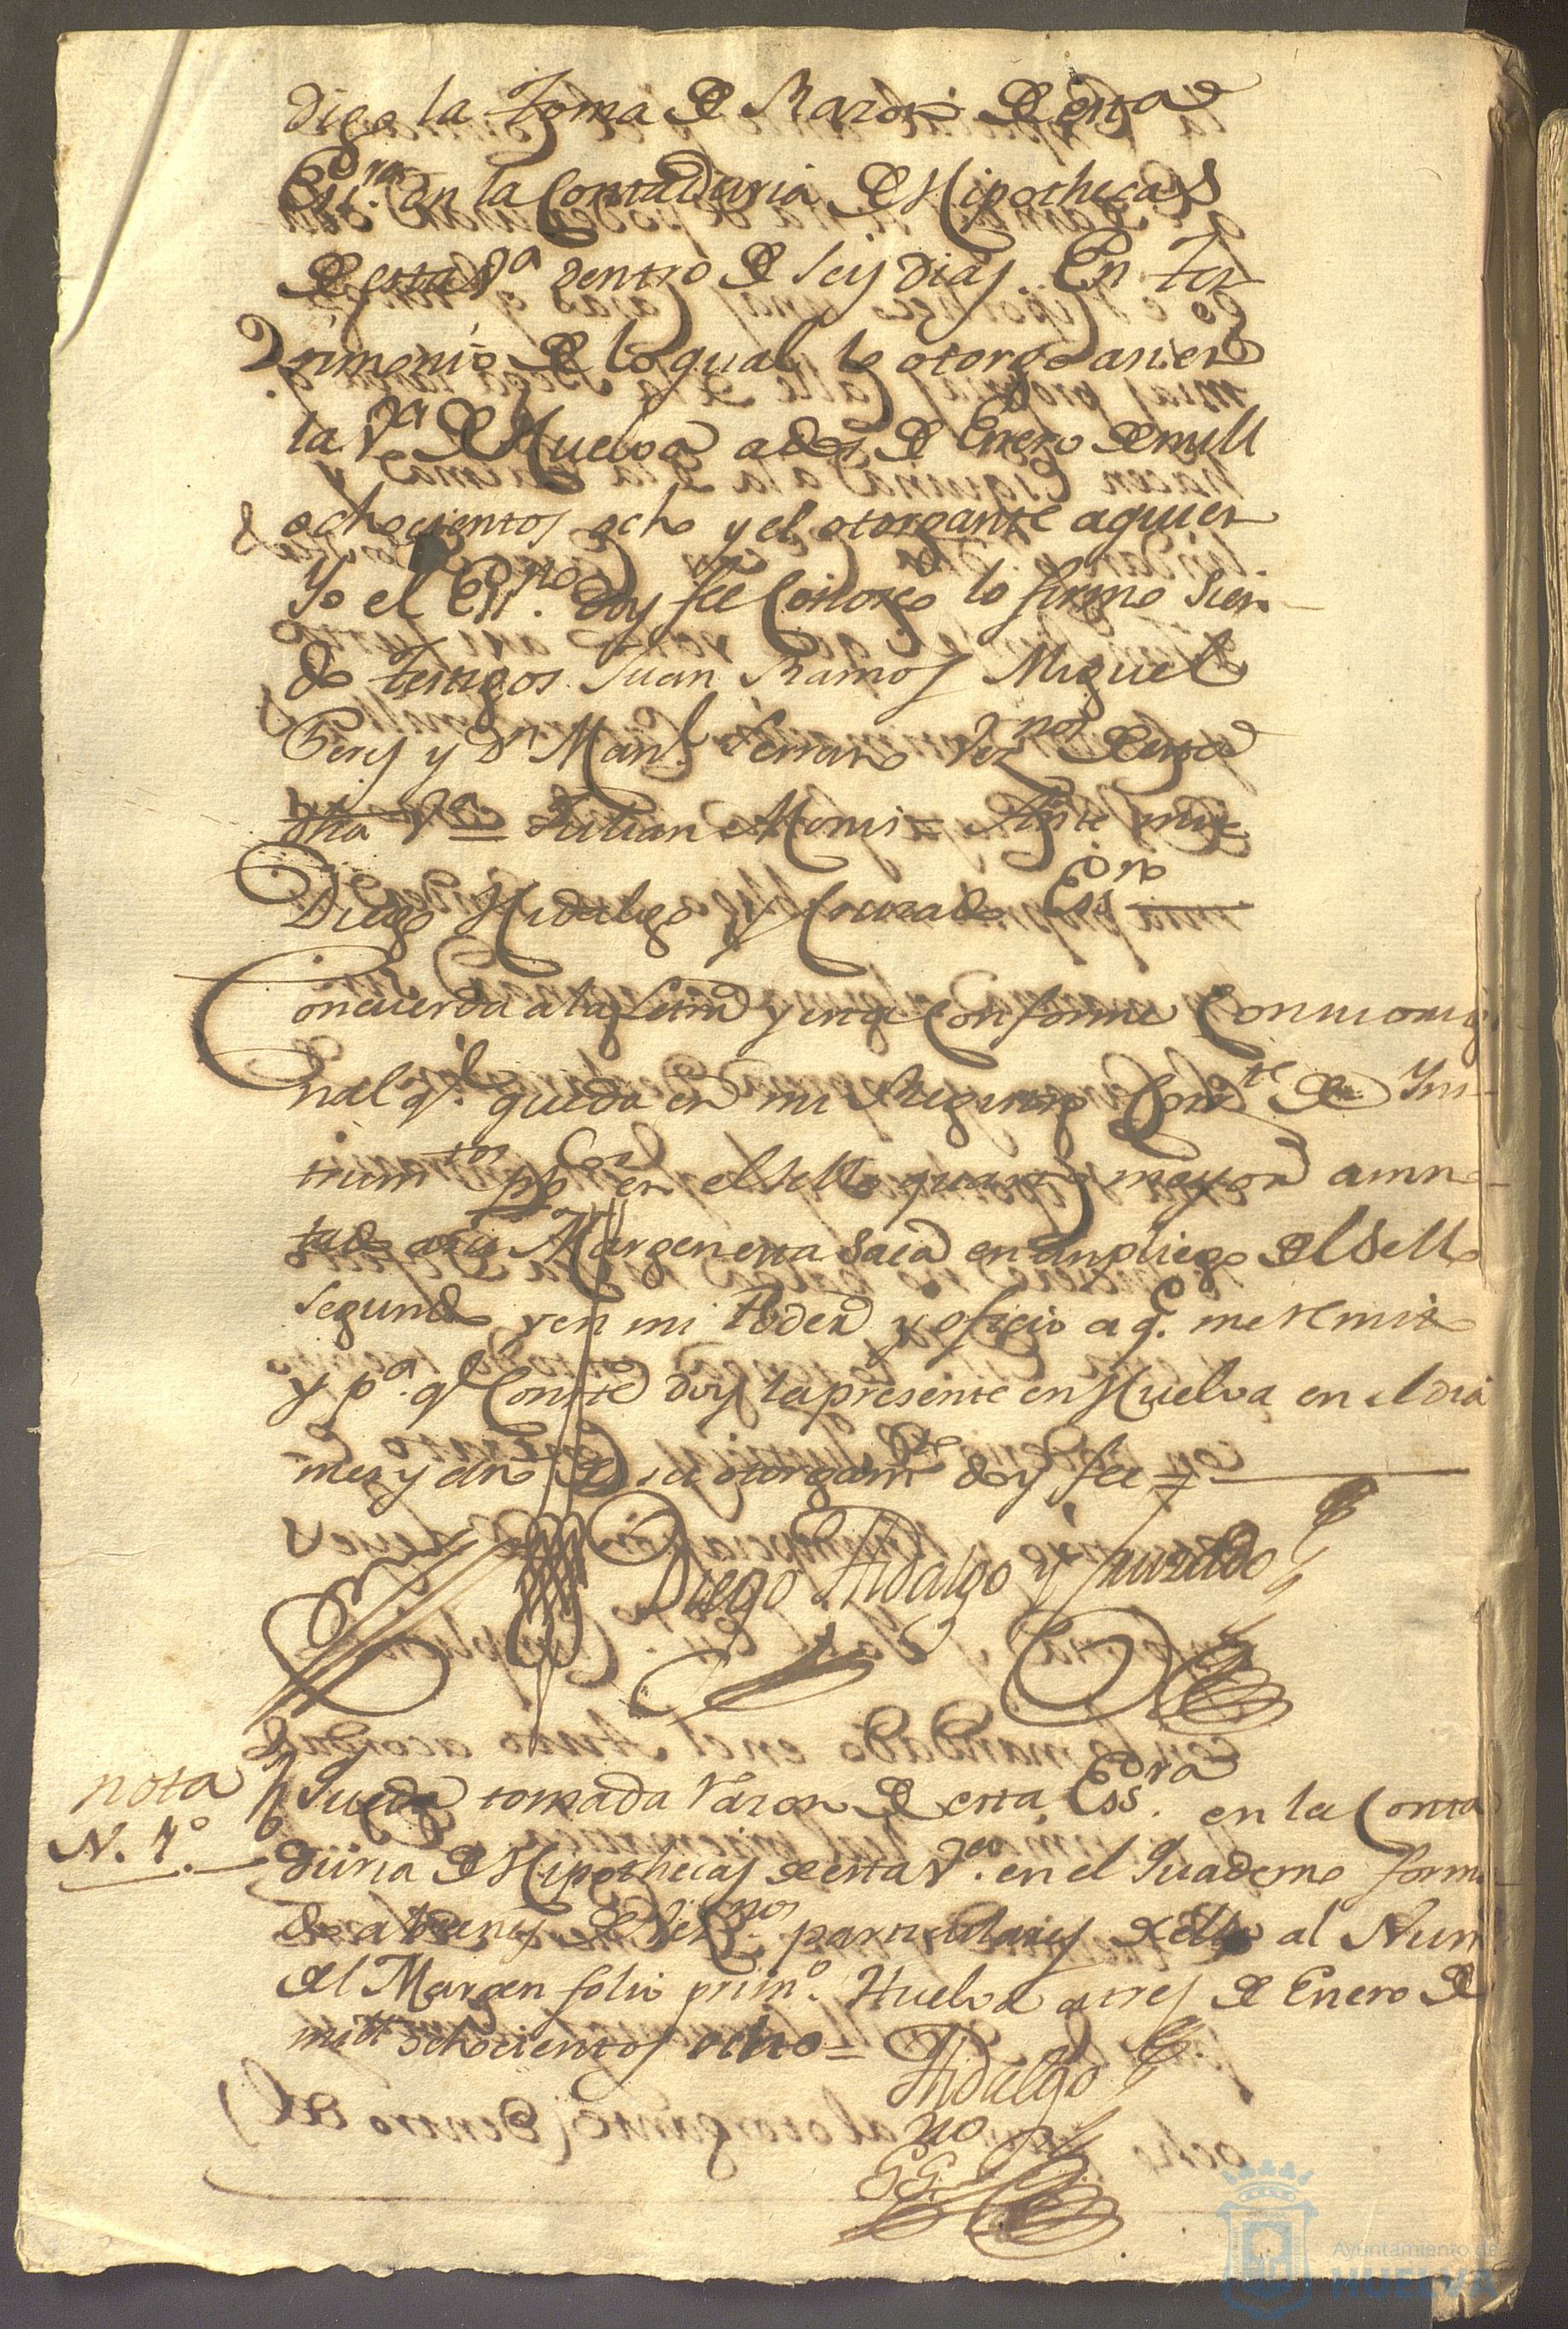 digo la toma de Razon de esta
Ess.ra en la Contaduria de Hipothecas
de esta V.a dentro de seis dias. En tes
timonio de lo qual lo otorgo asi en
la V.a de Huelva a dos de Enero de mill
ochocientos ocho y el otorgante aquien
Yo el Ess.no doy fee Conosco lo firmo sien
do testigos Juan Ramos Miguel
Peres y Dn Man.l Serrano Vez.nos de esta
dha V.a = Julian Monis = Ante mi =
Diego Hidalgo y Cruzado Ess.no
Concuerda a la Letra y esta Conforme Con su origi
nal q.e queda en mi Registro Corr.te de Yns
trum.tos pp.cos en el sello quarto mayor anno
tado a su Margen esta saca en un pliego del Sello
segundo y en mi Poder y oficio a q.e me remito
y p.a q.e Conste doy la presente en Huelva en el dia
mes y año de su otorgam.to doy fee =
Diego Hidalgo y Cruzado
nota
N. 1.º
Queda tomada razon de esta Ess.ra en la Conta
duria de Hipothecas de esta V.a en el Quaderno forma
do a bienes de Vez.nos particulares de ella al Num
del Margen folio prim.º Huelva a tres de Enero de
mill ochocientos ocho =
Hidalgo
no
Ayuntamiento de
HUELVA